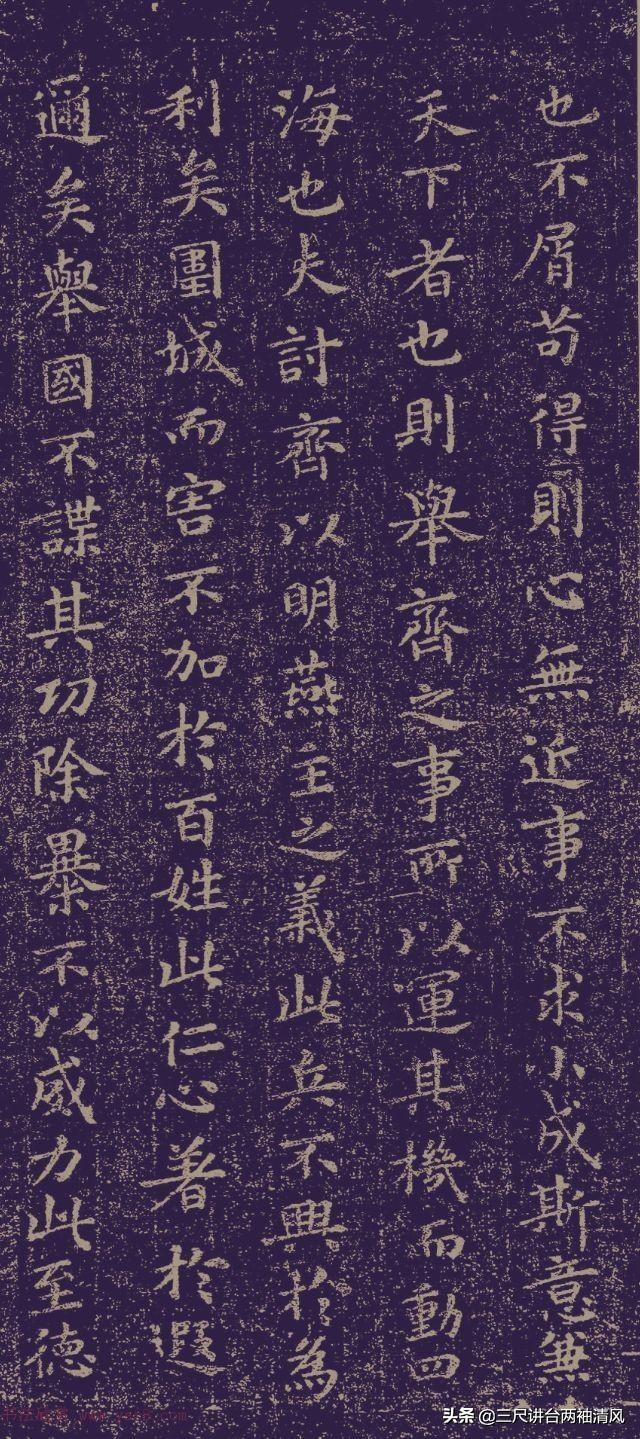 也不屑苟得則心無近事不求小成斯意兼
天下者也則舉齊之事所以運其機而動四
海也夫討齊以明燕主之義此兵不興於為
利矣圍城而害不加於百姓此仁心著於遐
邇矣舉國不謀其功除暴不以威力此至德
头条 @三尺讲台两袖清风